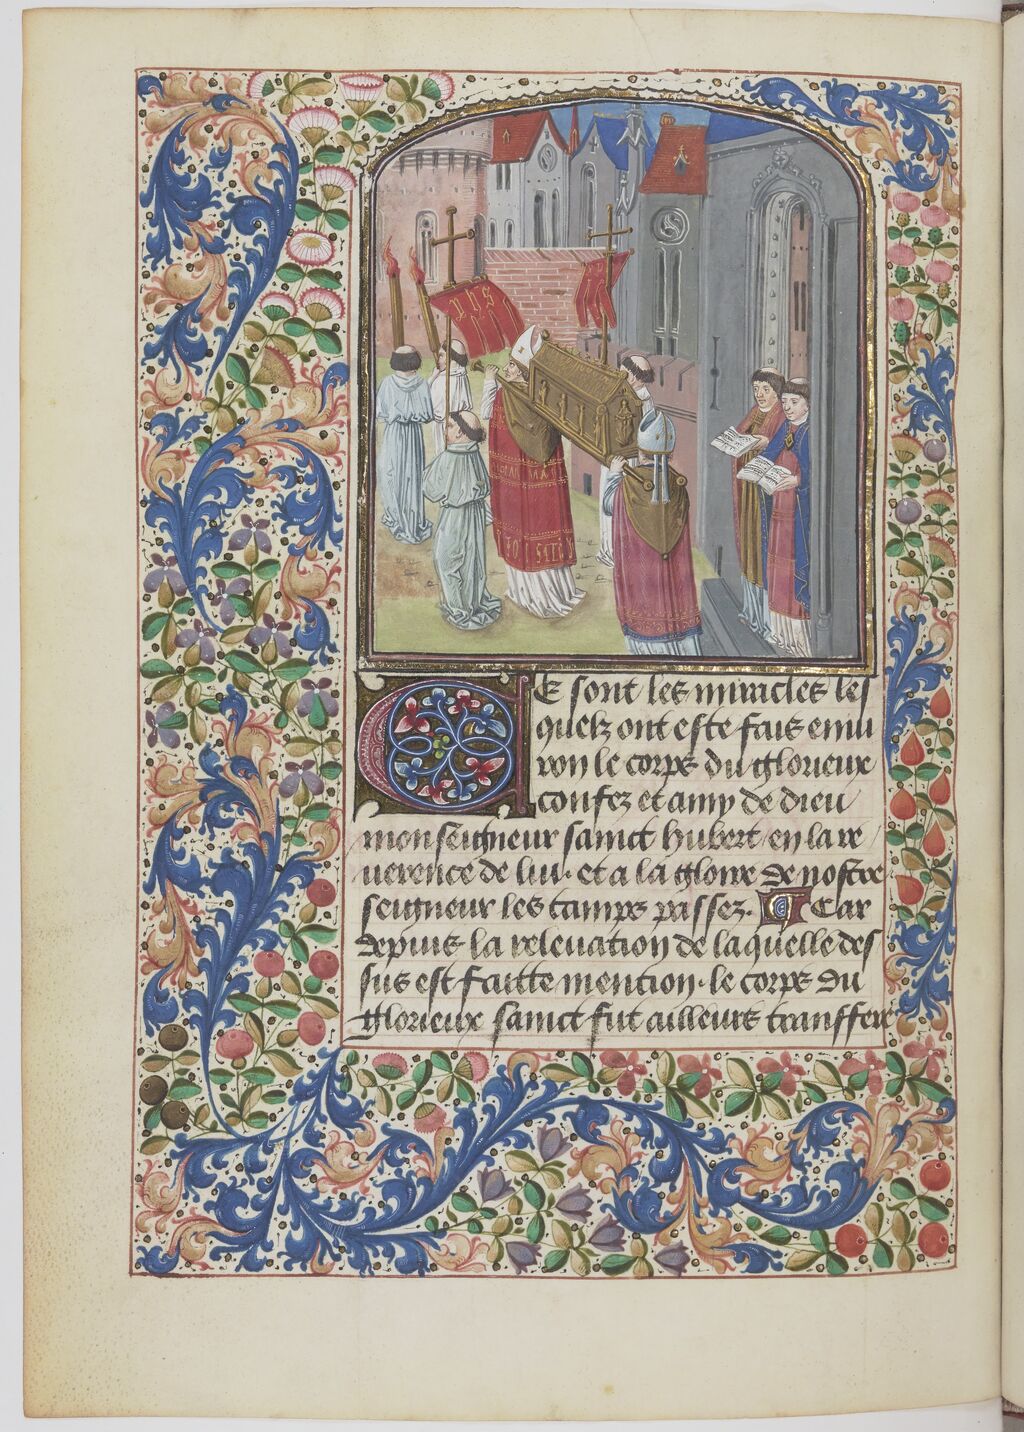 yhs
CE sont les miracles les
quelz ont este fais enui
ron le corps du glorieux
confez et amy de dieu
monseigneur sainct hubert en la re
uerence de lui· et a la gloire de nostre
seigneur les tamps passez. Car
depuis la releuation de laquelle des
sus est faitte mention· le corps du
glorieux sainct fut ailleurs transffere